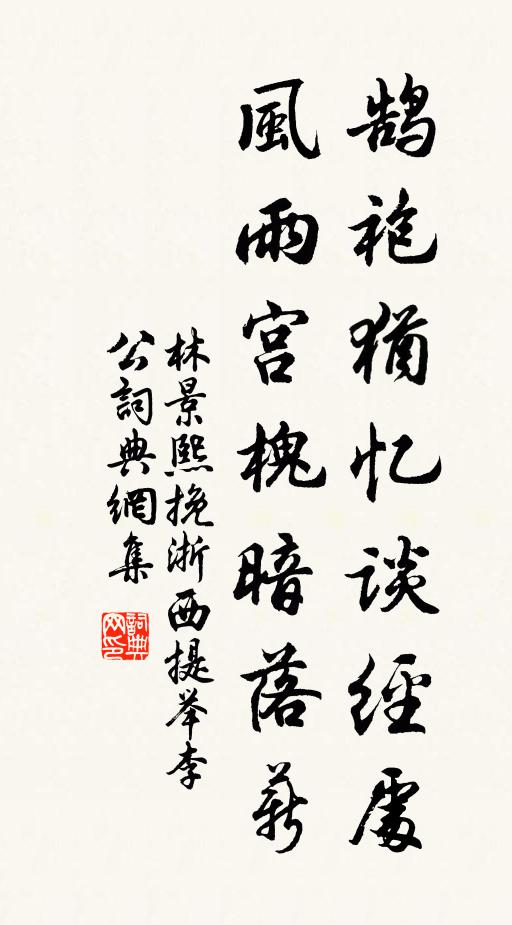 鹄袍猶忆談經處
風雨宫槐暗落薪
林景熙挽浙西提举李
公詞典網集
詞典网印